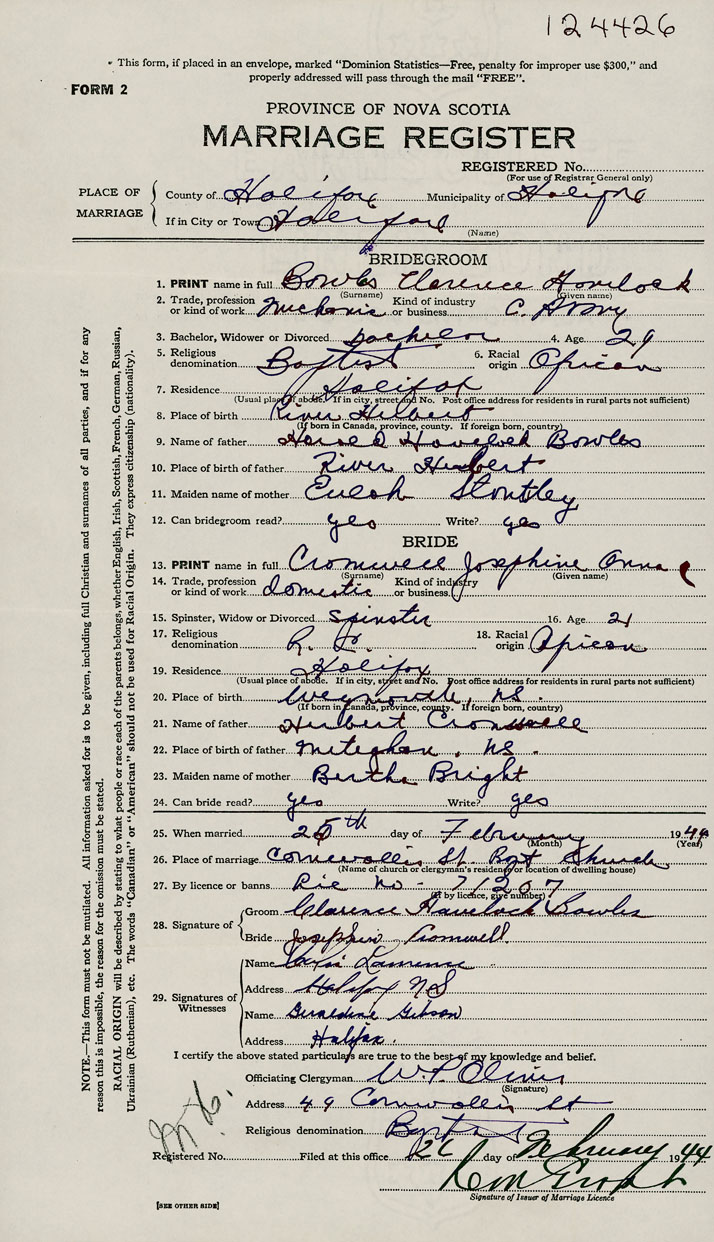 124426
* This form, if placed in an envelope, marked "Dominion Statistics—Free, penalty for improper use $300," and
properly addressed will pass through the mail "FREE".
FORM 2
PROVINCE OF NOVA SCOTIA
MARRIAGE REGISTER
REGISTERED No.
(For use of Registrar General only)
PLACE OF MARRIAGE
County of Halifax Municipality of Halifax
If in City or Town Halifax
(Name)
BRIDEGROOM
1. PRINT name in full Bowles Clarence Havelock
(Surname) (Given name)
2. Trade, profession or kind of work Mechanic Kind of industry or business C. Army
3. Bachelor, Widower or Divorced bachelor 4. Age 29
5. Religious denomination Baptist 6. Racial origin African
7. Residence Halifax
(Usual place of abode. If in city, street and No. Post office address for residents in rural parts not sufficient)
8. Place of birth River Hebert
(If born in Canada, province, county. If foreign born, country)
9. Name of father Havelock Bowles
10. Place of birth of father River Hebert
11. Maiden name of mother Eulah
12. Can bridegroom read? yes Write? yes
BRIDE
13. PRINT name in full Cromwell Josephine Anna
(Surname) (Given name)
14. Trade, profession or kind of work domestic Kind of industry or business
15. Spinster, Widow or Divorced Spinster 16. Age 21
17. Religious denomination R. 18. Racial origin African
19. Residence Halifax
(Usual place of abode. If in city, street and No. Post office address for residents in rural parts not sufficient)
20. Place of birth Weymouth, NS.
(If born in Canada, province, county. If foreign born, country)
21. Name of father Herbert Cromwell
22. Place of birth of father Meteghan, NS.
23. Maiden name of mother Bertha Bright
24. Can bride read? yes Write? yes
25. When married 25th day of February 1944
(Month) (Year)
26. Place of marriage Cornwallis St. Bapt Church
(Name of church or clergyman's residence or location of dwelling house)
27. By licence or banns Lic No - 71207
(If by licence, give number)
28. Signature of
Groom Clarence Havelock Bowles
Bride Josephine Cromwell.
29. Signatures of Witnesses
Name Lawrence
Address Halifax NS
Name Geraldine Gibson
Address Halifax.
I certify the above stated particulars are true to the best of my knowledge and belief.
Officiating Clergyman W. P. Oliver
(Signature)
Address 49 Cornwallis St
Religious denomination Baptist
Registered No. Filed at this office 26 day of February 1944
Signature of Issuer of Marriage Licence
[SEE OTHER SIDE]
NOTE.—This form must not be mutilated. All information asked for is to be given, including full Christian and surnames of all parties, and if for any
reason this is impossible, the reason for the omission must be stated.
RACIAL ORIGIN will be described by stating to what people or race each of the parents belongs, whether English, Irish, Scottish, French, German, Russian,
Ukrainian (Ruthenian), etc. The words "Canadian" or "American" should not be used for Racial Origin. They express citizenship (nationality).